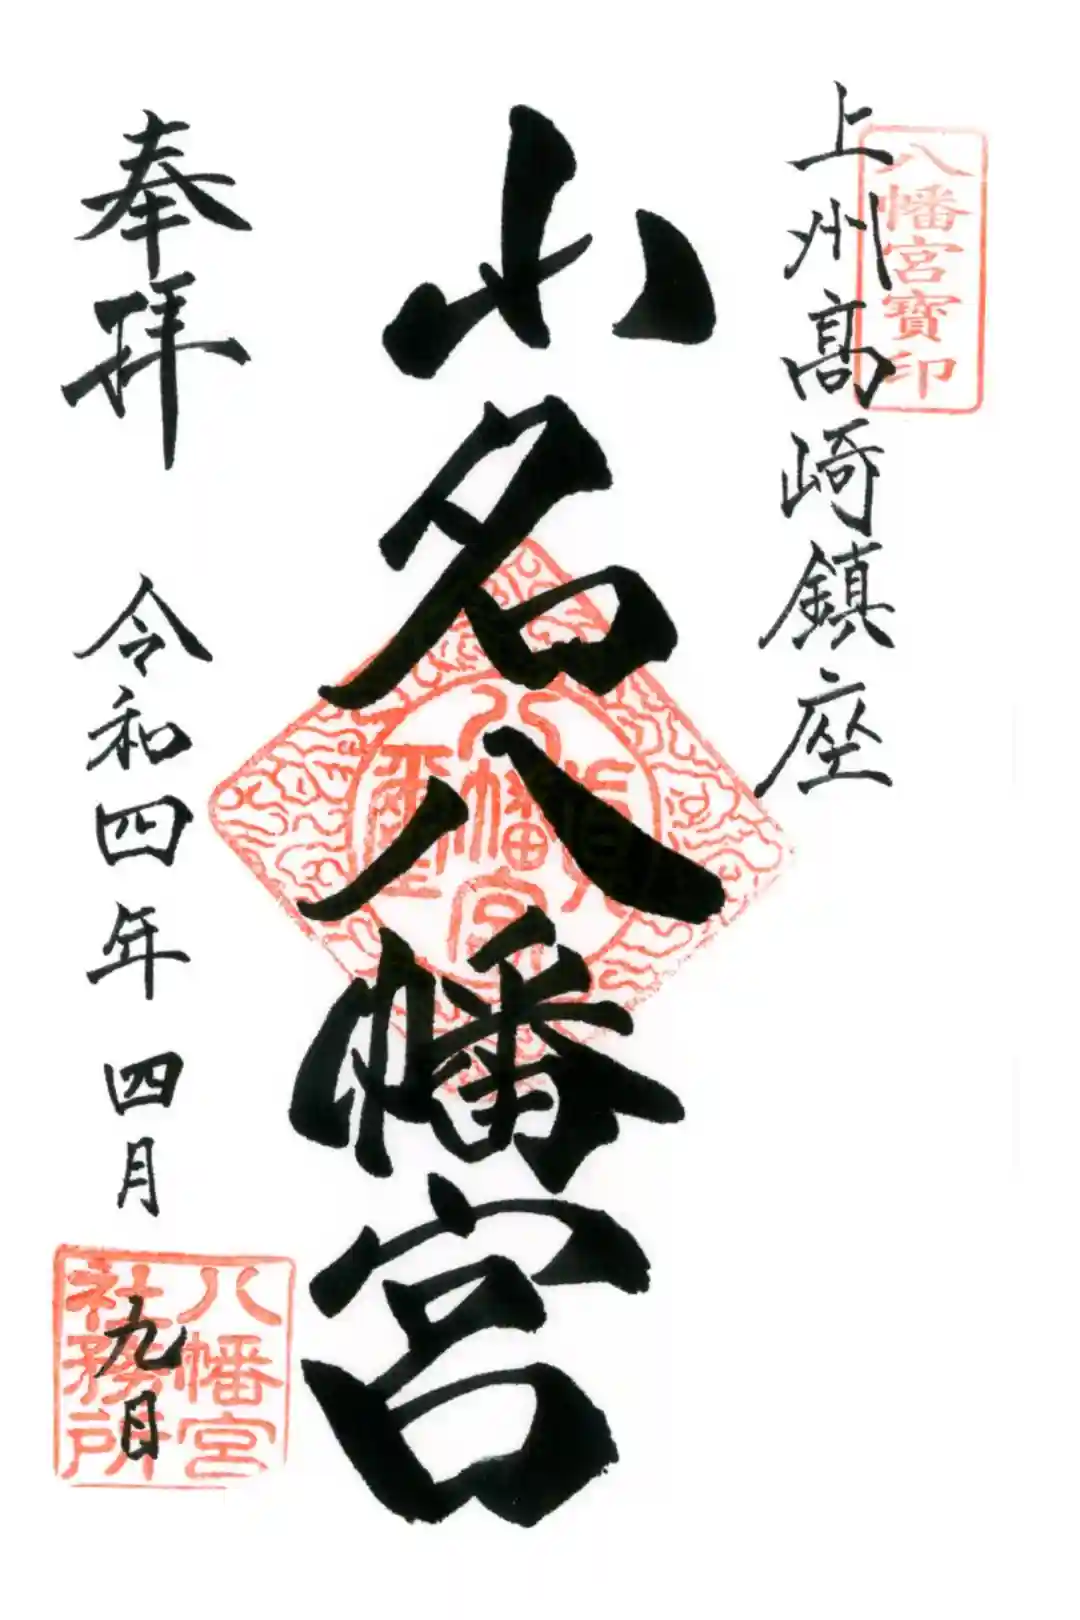 八幡宮寶印
上州髙崎鎮座
山名八幡宮
八幡宮
奉拝
令和四年四月九日
八幡宮
社務所